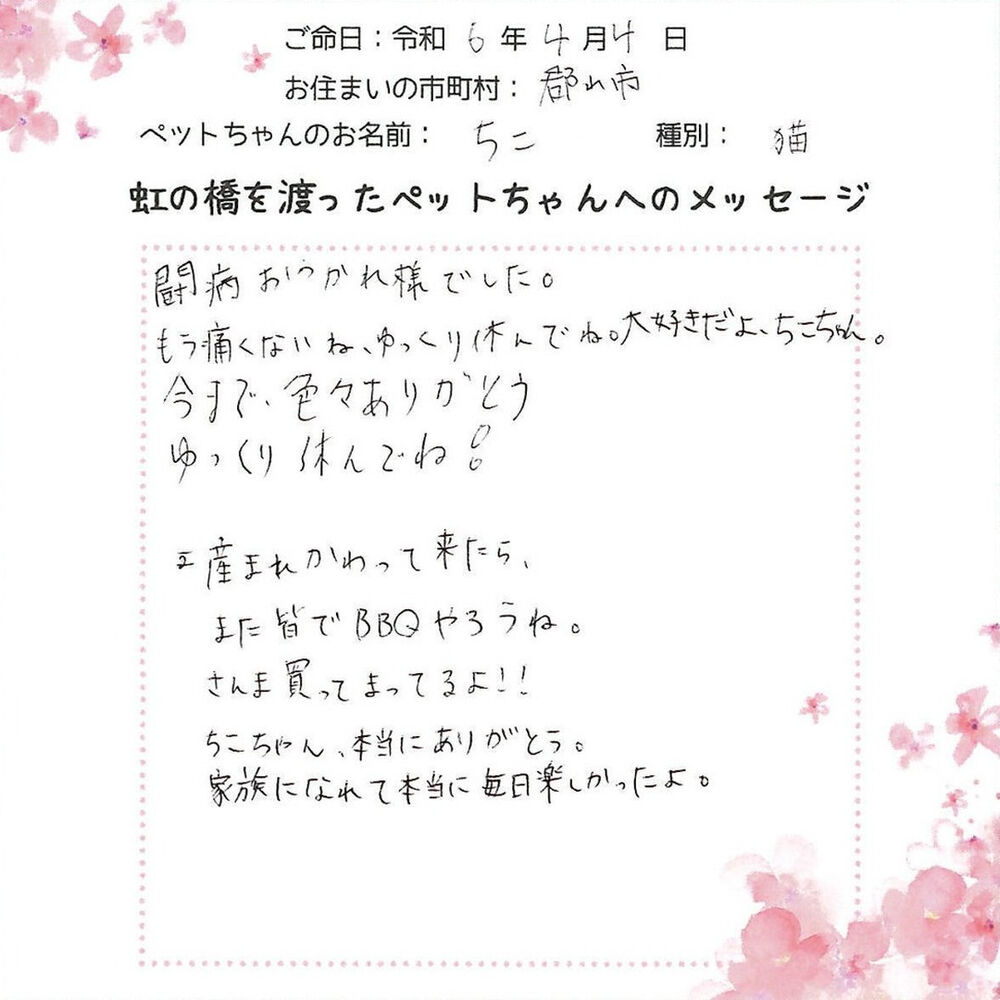 ご命日：令和 6 年 4 月 4 日
お住まいの市町村： 郡山市
ペットちゃんのお名前： ちこ 種別： 猫
虹の橋を渡ったペットちゃんへのメッセージ
闘病おつかれ様でした。
もう痛くないね、ゆっくり休んでね。大好きだよ、ちこちゃん。
今まで、色々ありがとう
ゆっくり休んでね!
産まれかわって来たら、
また皆でBBQやろうね。
さんま買ってまってるよ!!
ちこちゃん、本当にありがとう。
家族になれて本当に毎日楽しかったよ。